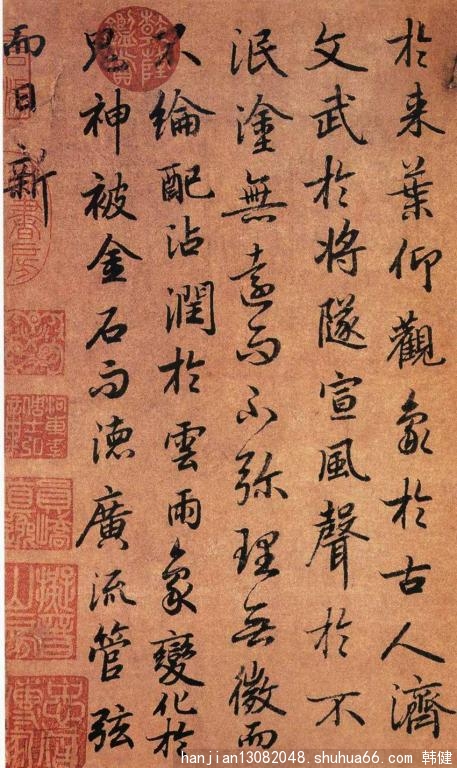 於来葉仰觀象於古人濟
文武於将隧宣風聲於不
泯塗無遠而不弥理無微而
不綸配沾潤於雲雨象變化於
鬼神被金石而德廣流管弦
而日新
乾隆鑑賞
hanjian13082048.shuhua66.com 韩健